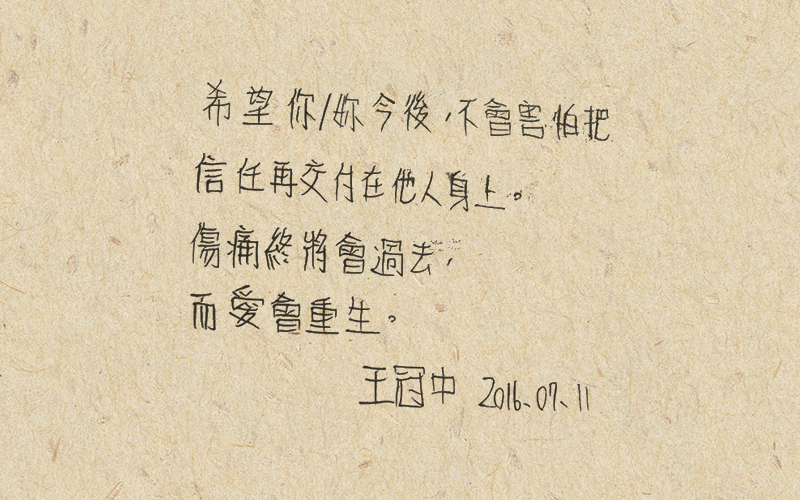 希望你/妳今後,不會害怕把
信任再交付在他人身上。
傷痛終將會過去,
而愛會重生。
王冠中 2016.07.11